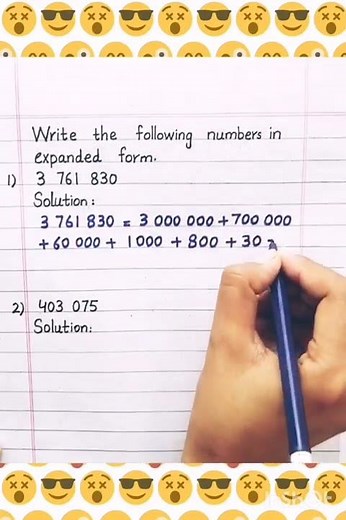 Write the following numbers in
expanded form.
1) 3 761 830
Solution:
3 761 830 = 3 000 000 + 700 000
+ 60 000 + 1000 + 800 + 30
2) 403 075
Solution: